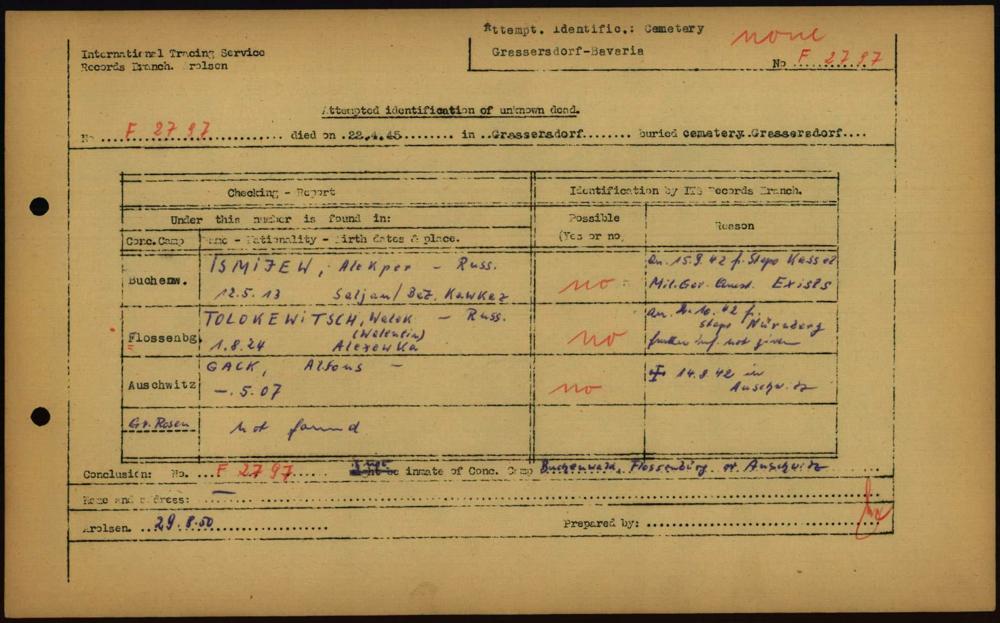 Attempt. Identific.: Cemetery
Grassersdorf-Bavaria
none
No F 2797
International Tracing Service
Records Branch. Arolsen
Attempted identification of unknown dead.
No F 2797 died on 22.4.45 in Grassersdorf buried cemetery Grassersdorf
Checking - Report
Identification by ITS Records Branch.
Under this number is found in:
Possible (Yes or no)
Reason
Conc.Camp
Name - Nationality - Birth dates & place.
Buchenw.
ISMIJEW, Alekper - Russ.
12.5.13 Saljan/Bez. Kawkaz
no
an. 15.9.42 f. Stapo Kassel
Mil.Gov. Quest. Exists
Flossenbg.
TOLOKEWITSCH, Walek - Russ.
(Walentin)
1.8.24 Alexewka
no
Stapo Nürnberg
further inf. not given
Auschwitz
GACK, Alfons -
-.5.07
no
14.8.42 in
Auschwitz
Gr. Rosen
not found
Conclusion: No. F 2797 inmate of Conc. Camp Buchenwald, Flossenbürg or Auschwitz
Name and address: -
Arolsen. 29.8.50
Prepared by: